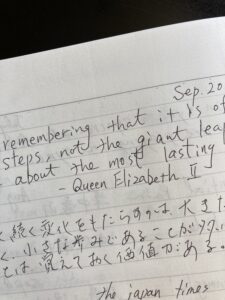 Sep. 20
remembering that it is of
steps, not the giant leap
about the most lasting
- Queen Elizabeth II
く続く変化をもたらすのは大きな
く、小さな歩みであることが多い
とは覚えておく価値がある。
the japan times